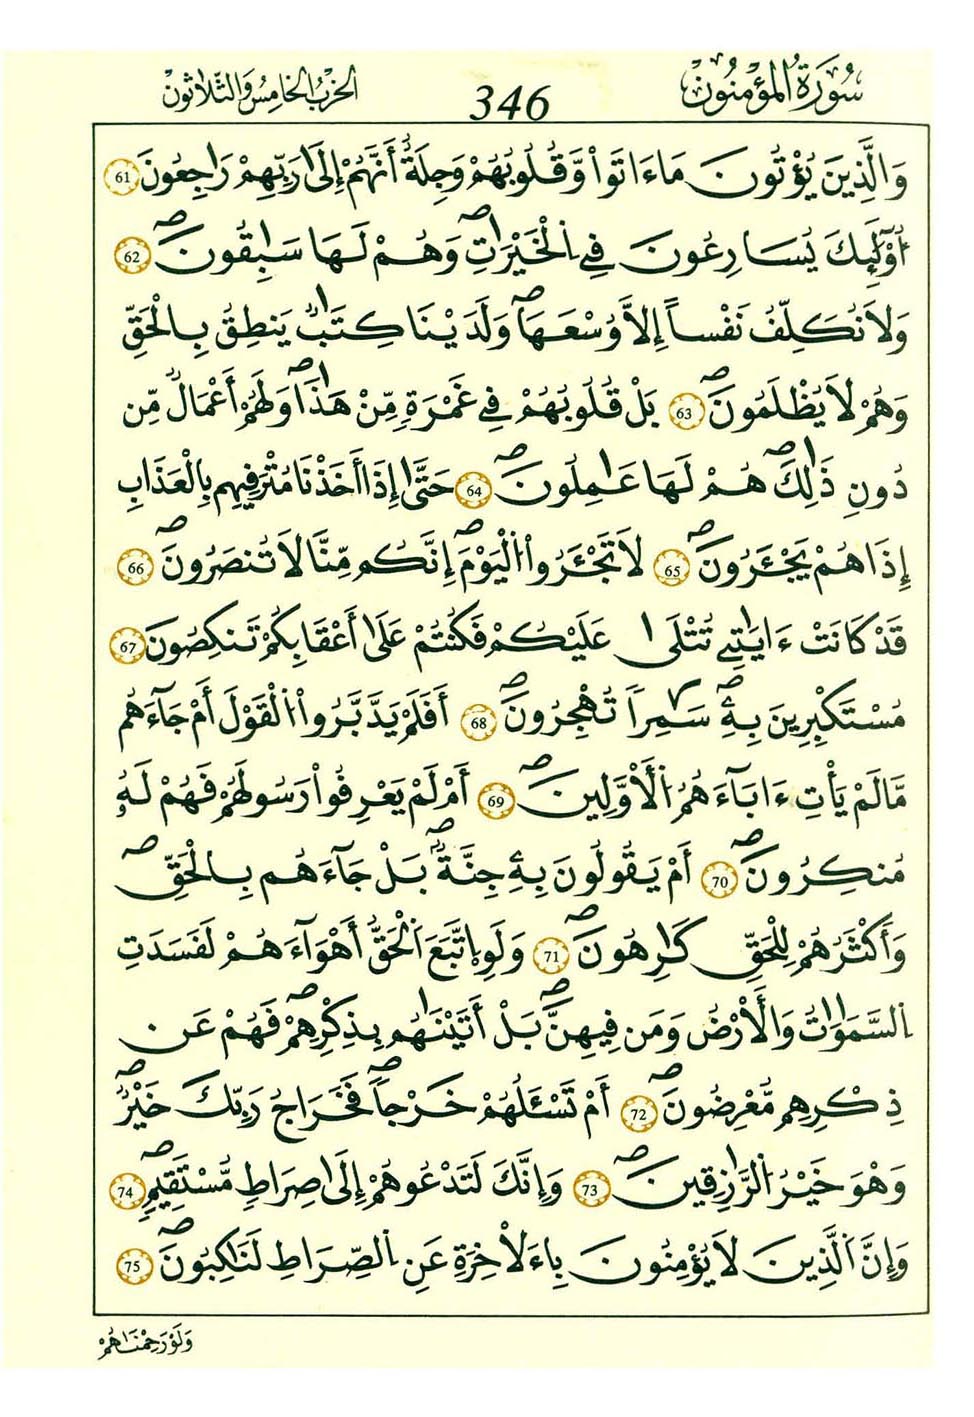 سُورَةُ الْمُؤْمِنُونَ 346 الحِزْبُ الخَامِسُ وَالثَّلَاثُونَ
وَالَّذِينَ يُؤْتُونَ مَا ءَاتَوا وَّقُلُوبُهُمْ وَجِلَةٌ أَنَّهُمْ إِلَىٰ رَبِّهِمْ رَاجِعُونَ 61
أُوْلَٰٓئِكَ يُسَارِعُونَ فِي اِلْخَيْرَٰتِ وَهُمْ لَهَا سَٰبِقُونَ 62
وَلَا نُكَلِّفُ نَفْساً إِلَّا وُسْعَهَا وَلَدَيْنَا كِتَٰبٌ يَنطِقُ بِالْحَقِّ
وَهُمْ لَا يُظْلَمُونَ 63 بَلْ قُلُوبُهُمْ فِي غَمْرَةٍ مِّنْ هَٰذَا وَلَهُمْ أَعْمَالٌ مِّن
دُونِ ذَٰلِكَ هُمْ لَهَا عَٰمِلُونَ 64 حَتَّىٰ إِذَا أَخَذْنَا مُتْرَفِيهِم بِالْعَذَابِ
إِذَا هُمْ يَجْـَٔرُونَ 65 لَا تَجْـَٔرُواْ الْيَوْمَ إِنَّكُم مِّنَّا لَا تُنصَرُونَ 66
قَدْ كَانَتْ ءَايَٰتِي تُتْلَىٰ عَلَيْكُمْ فَكُنتُمْ عَلَىٰ أَعْقَابِكُمْ تَنكِصُونَ 67
مُسْتَكْبِرِينَ بِهِۦ سَٰمِراً تُهْجِرُونَ 68 أَفَلَمْ يَدَّبَّرُواْ الْقَوْلَ أَمْ جَآءَهُم
مَّا لَمْ يَأْتِ ءَابَآءَهُمُ الْأَوَّلِينَ 69 أَمْ لَمْ يَعْرِفُواْ رَسُولَهُمْ فَهُمْ لَهُۥ
مُنكِرُونَ 70 أَمْ يَقُولُونَ بِهِۦ جِنَّةٌ بَلْ جَآءَهُم بِالْحَقِّ
وَأَكْثَرُهُمْ لِلْحَقِّ كَٰرِهُونَ 71 وَلَوِ اِتَّبَعَ اَلْحَقُّ أَهْوَآءَهُمْ لَفَسَدَتِ
اِلسَّمَٰوَٰتُ وَالْأَرْضُ وَمَن فِيهِنَّ بَلْ أَتَيْنَٰهُم بِذِكْرِهِمْ فَهُمْ عَن
ذِكْرِهِم مُّعْرِضُونَ 72 أَمْ تَسْـَٔلُهُمْ خَرْجاً فَخَرَاجُ رَبِّكَ خَيْرٌ
وَهُوَ خَيْرُ الرَّٰزِقِينَ 73 وَإِنَّكَ لَتَدْعُوهُمْ إِلَىٰ صِرَاطٍ مُّسْتَقِيمٍ 74
وَإِنَّ اَلَّذِينَ لَا يُؤْمِنُونَ بِالْءَاخِرَةِ عَنِ اِلصِّرَاطِ لَنَٰكِبُونَ 75
وَلَوْ رَحِمْنَٰهُمْ